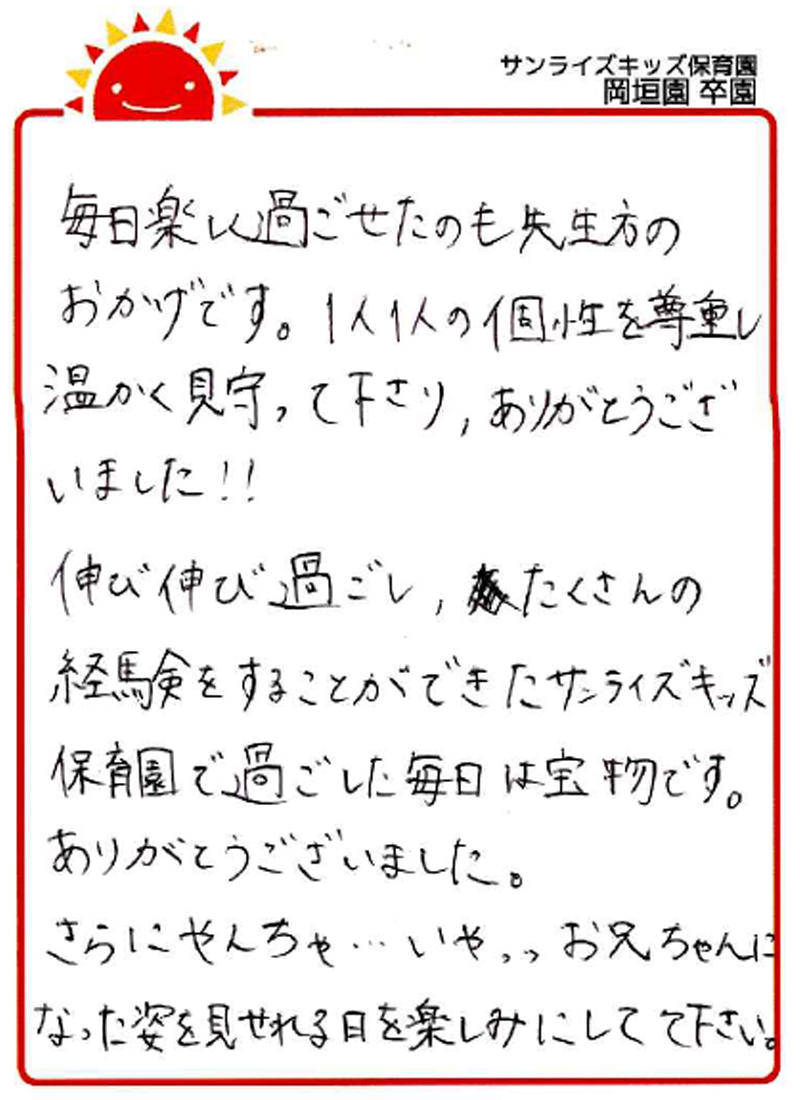 サンライズキッズ保育園
岡垣園 卒園
毎日楽しく過ごせたのも先生方の
おかげです。1人1人の個性を尊重し
温かく見守って下さり, ありがとうござ
いました!!
伸び伸び過ごし, たくさんの
経験をすることができたサンライズキッズ
保育園で過ごした毎日は宝物です。
ありがとうございました。
さらにやんちゃ…いやっっお兄ちゃんに
なった姿を見せれる日を楽しみにしてて下さい。